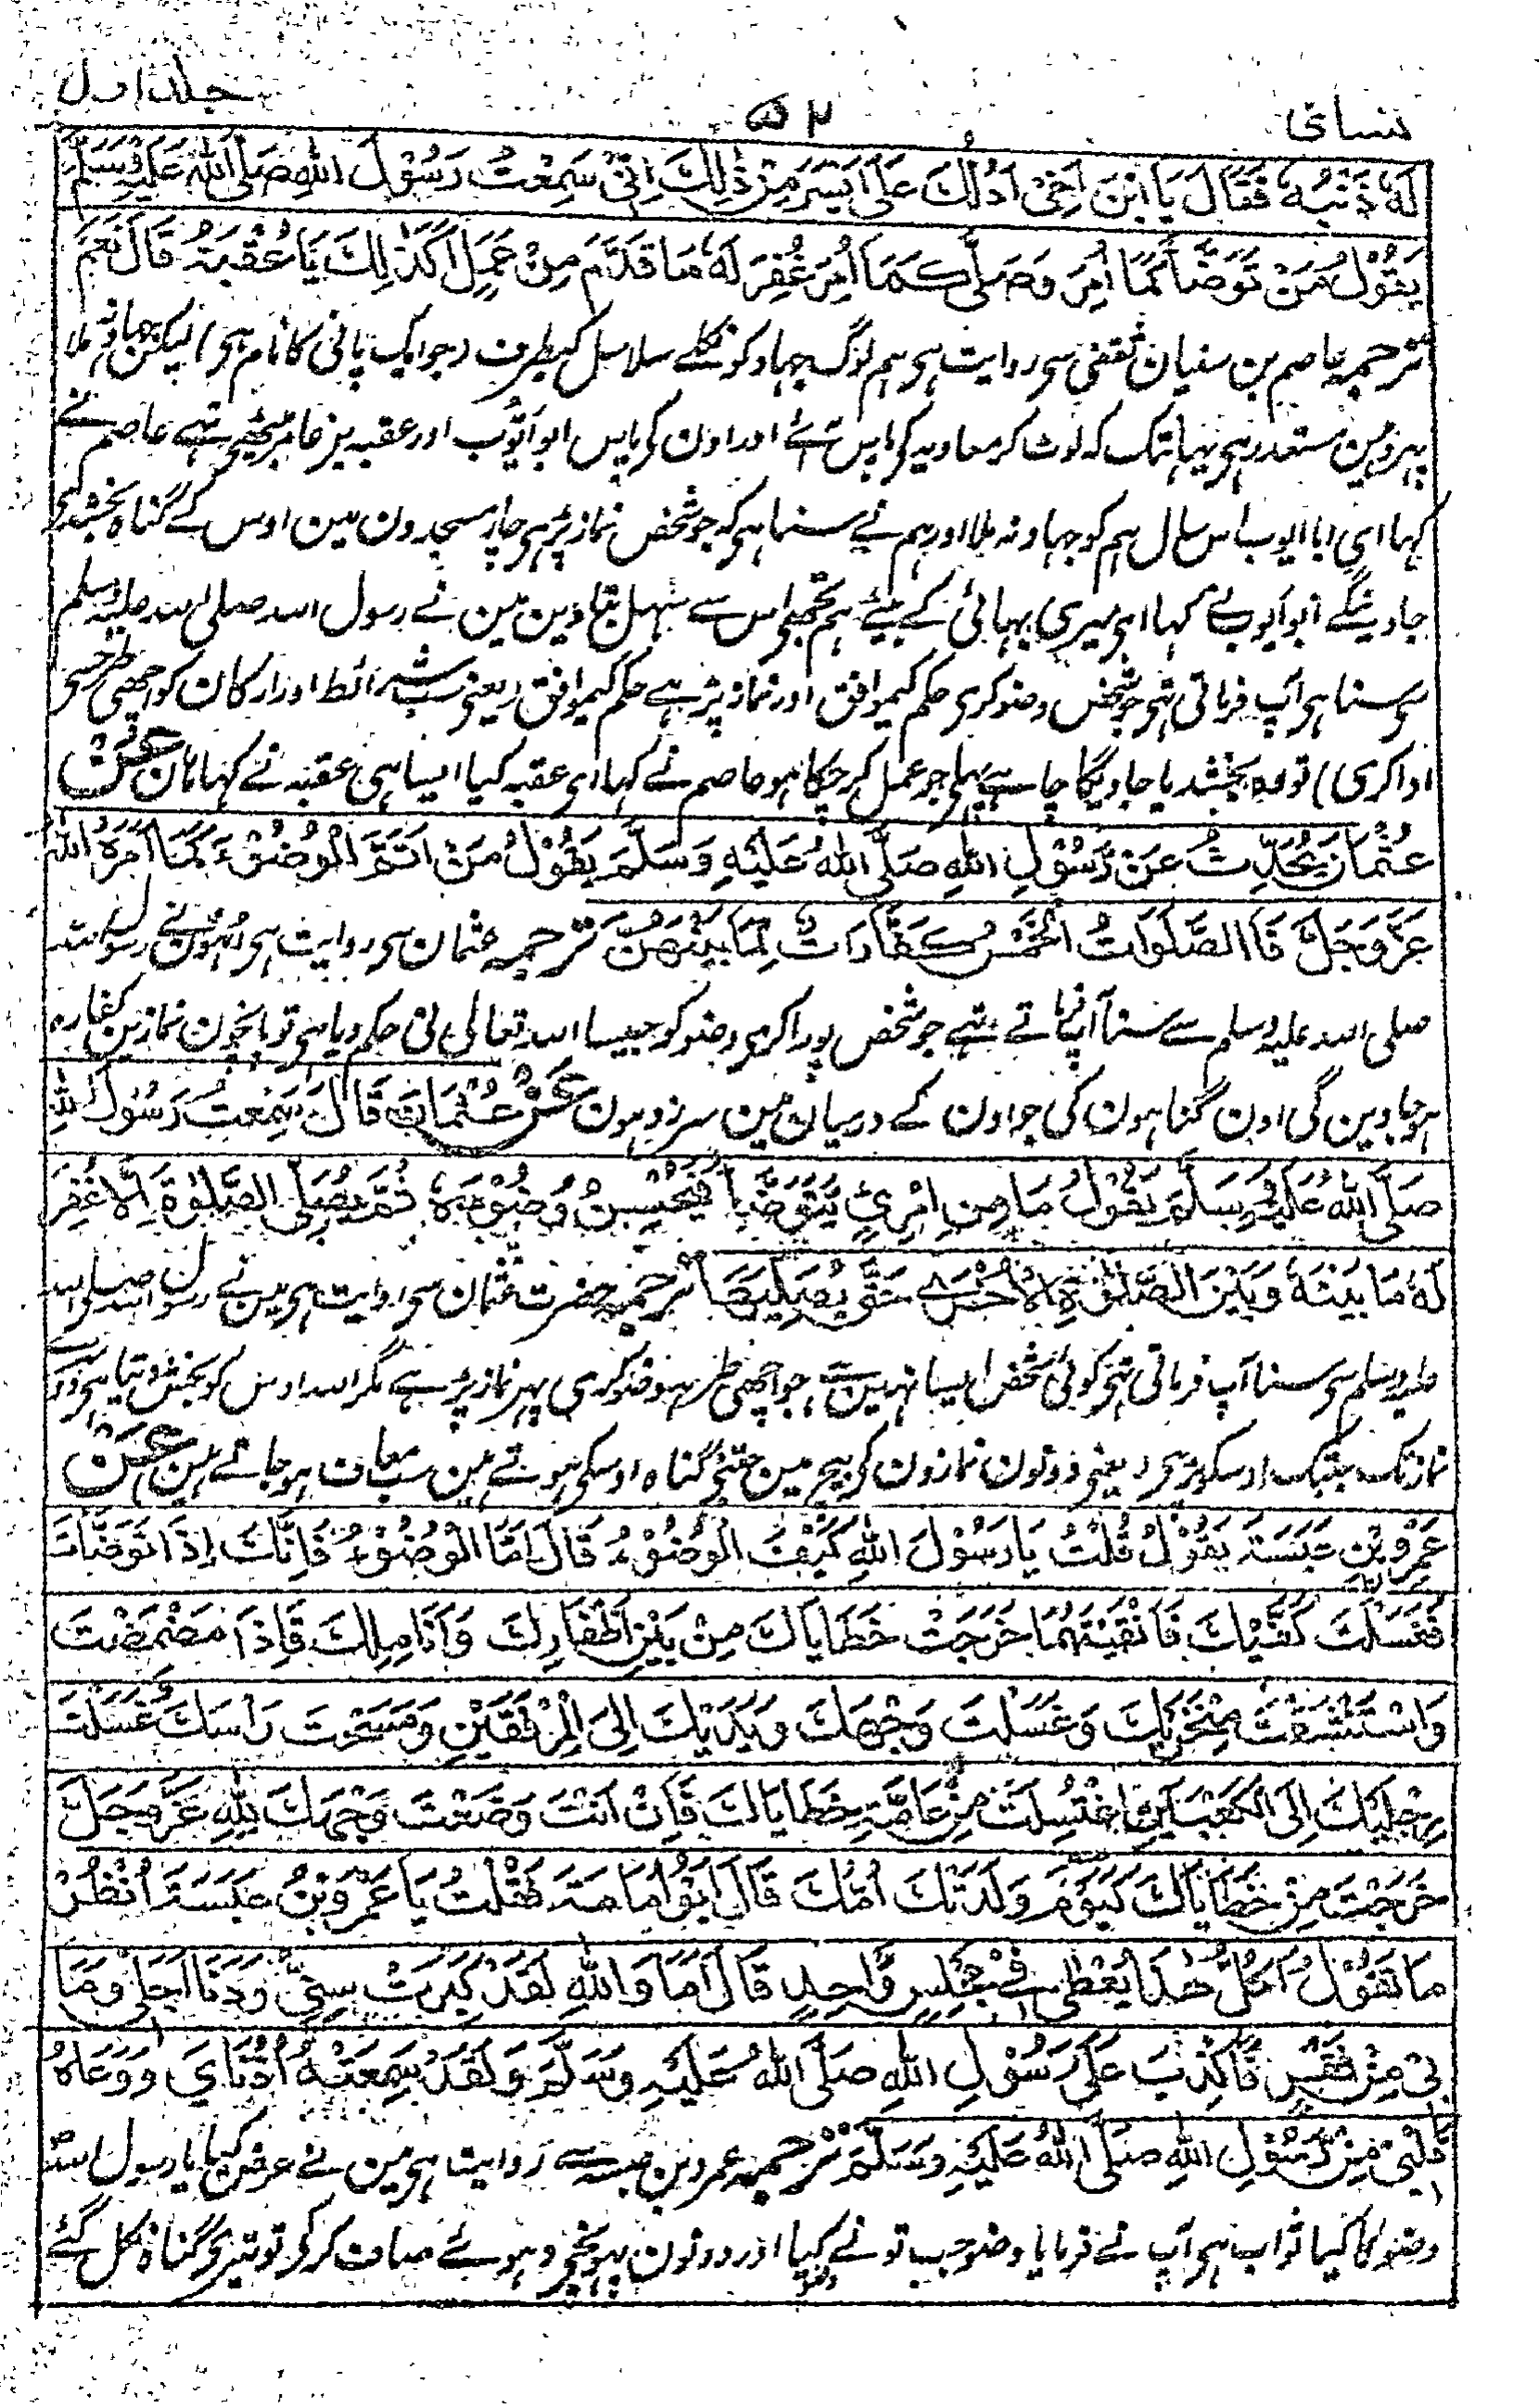 نسائی ۵۲ جلد اول
لَهٗ ذَنْبُهٗ فَقَالَ یَا ابْنَ اَخِیْ اَدُلُّكَ عَلٰی اَیْسَرَ مِنْ ذٰلِكَ اِنِّیْ سَمِعْتُ رَسُوْلَ اللّٰهِ صَلَّی اللّٰهُ عَلَیْهِ وَسَلَّمَ
یَقُوْلُ مَنْ تَوَضَّاَ كَمَا اُمِرَ وَصَلّٰی كَمَا اُمِرَ غُفِرَ لَهٗ مَا قَدَّمَ مِنْ عَمَلٍ اَكَذٰلِكَ یَا عُقْبَةُ قَالَ نَعَمْ
ترجمہ عاصم بن سفیان ثقفی سی روایت ہی ہم لوگ جہاد کو نکلے سلاسل کیطرف (جو ایک پانی کا نام ہی) لیکن جہاد نہ ملا
پہر وہین مستعد رہی یہانتک کہ لوٹ کر معاویہ کی پاس آئے اور اون کی پاس ابو ایوب اور عقبہ بن عامر بیٹھی تہے عاصم نے
کہا ای ابا ایوب اس سال ہم کو جہاد نہ ملا اور ہم نے سنا ہی کہ جو شخص نماز پڑہی چار مسجدون مین اوس کے گناہ بخشدئی
جاوینگے ابو ایوب نے کہا ای میری بہائی کے بیٹے ہم تجھی اس سے سہل بتا دین مین نے رسول اللہ صلی اللہ علیہ وسلم
سی سنا ہی آپ فرماتی تہی جو شخص وضو کری حکم کیموافق اور نماز پڑہے حکم کیموافق (یعنی سب شرائط اور ارکان کو اچھی طرح سی
ادا کری) تو وہ بخشدیا جاویگا چاہے پہلی جو عمل کر چکا ہو عاصم نے کہا ای عقبہ کیا ایسا ہی عقبہ نے کہا ہان عَنْ
عُثْمَانَ یُحَدِّثُ عَنْ رَسُوْلِ اللّٰهِ صَلَّی اللّٰهُ عَلَیْهِ وَسَلَّمَ یَقُوْلُ مَنْ اَتَمَّ الْوُضُوْءَ كَمَا اَمَرَهُ اللّٰهُ
عَزَّ وَجَلَّ فَالصَّلَوَاتُ الْخَمْسُ كَفَّارَاتٌ لِمَا بَیْنَهُنَّ ترجمہ عثمان سی روایت ہی انہون نے رسول اللہ
صلی اللہ علیہ وسلم سے سنا آپ فرماتے تہے جو شخص پورا کری وضو کو جیسا اللہ تعالی نی حکم دیا ہی تو پانچون نمازین کفارہ
ہو جاوین گی اون گناہون کی جو اون کے درمیان مین سرزد ہون عَنْ عُثْمَانَ قَالَ سَمِعْتُ رَسُوْلَ اللّٰهِ
صَلَّی اللّٰهُ عَلَیْهِ وَسَلَّمَ یَقُوْلُ مَا مِنِ امْرِئٍ یَتَوَضَّأُ فَیُحْسِنُ وُضُوْءَهٗ ثُمَّ یُصَلِّی الصَّلٰوةَ اِلَّا غُفِرَ
لَهٗ مَا بَیْنَهٗ وَبَیْنَ الصَّلٰوةِ الْاُخْرٰی حَتّٰی یُصَلِّیَهَا ترجمہ حضرت عثمان سی روایت ہی مین نے رسول اللہ صلی اللہ
علیہ وسلم سی سنا آپ فرماتی تہی کوئی شخص ایسا نہین ہے جو اچھی طرح وضو کری پہر نماز پڑہے مگر اللہ اوس کو بخش دیتا ہی دوسری
نماز تک جبتک اوسکو پڑہی (یعنی دونون نمازون کی بیچ مین جتنی گناہ اوسکی ہوتے ہین سب معاف ہو جاتے ہین) عَنْ
عَمْرِو بْنِ عَبَسَةَ یَقُوْلُ قُلْتُ یَا رَسُوْلَ اللّٰهِ كَیْفَ الْوُضُوْءُ قَالَ اَمَّا الْوُضُوْءُ فَاِنَّكَ اِذَا تَوَضَّاْتَ
فَغَسَلْتَ كَفَّیْكَ فَاَنْقَیْتَهُمَا خَرَجَتْ خَطَایَاكَ مِنْ بَیْنِ اَظْفَارِكَ وَاَنَامِلِكَ فَاِذَا مَضْمَضْتَ
وَاسْتَنْشَقْتَ مِنْخَرَیْكَ وَغَسَلْتَ وَجْهَكَ وَیَدَیْكَ اِلَی الْمِرْفَقَیْنِ وَمَسَحْتَ رَاْسَكَ وَغَسَلْتَ
رِجْلَیْكَ اِلَی الْكَعْبَیْنِ اغْتَسَلْتَ مِنْ عَامَّةِ خَطَایَاكَ فَاِنْ اَنْتَ وَضَعْتَ وَجْهَكَ لِلّٰهِ عَزَّ وَجَلَّ
خَرَجْتَ مِنْ خَطَایَاكَ كَیَوْمَ وَلَدَتْكَ اُمُّكَ قَالَ اَبُوْ اُمَامَةَ فَقُلْتُ یَا عَمْرَو بْنَ عَبَسَةَ اُنْظُرْ
مَا تَقُوْلُ اَكُلُّ هٰذَا یُعْطٰی فِیْ مَجْلِسٍ وَّاحِدٍ قَالَ اَمَا وَاللّٰهِ لَقَدْ كَبُرَتْ سِنِّیْ وَدَنَا اَجَلِیْ وَمَا
بِیْ مِنْ فَقْرٍ فَاَكْذِبَ عَلٰی رَسُوْلِ اللّٰهِ صَلَّی اللّٰهُ عَلَیْهِ وَسَلَّمَ وَلَقَدْ سَمِعَتْهُ اُذُنَایَ وَوَعَاهُ
قَلْبِیْ مِنْ رَسُوْلِ اللّٰهِ صَلَّی اللّٰهُ عَلَیْهِ وَسَلَّمَ ترجمہ عمرو بن عبسہ سے روایت ہی مین نے عرض کیا یا رسول اللہ
وضو کا کیا ثواب ہی آپ نے فرمایا وضو جب تو نے کیا اور دونون پہونچی دہوئے صاف کر کی تو تیری گناہ نکل گئے